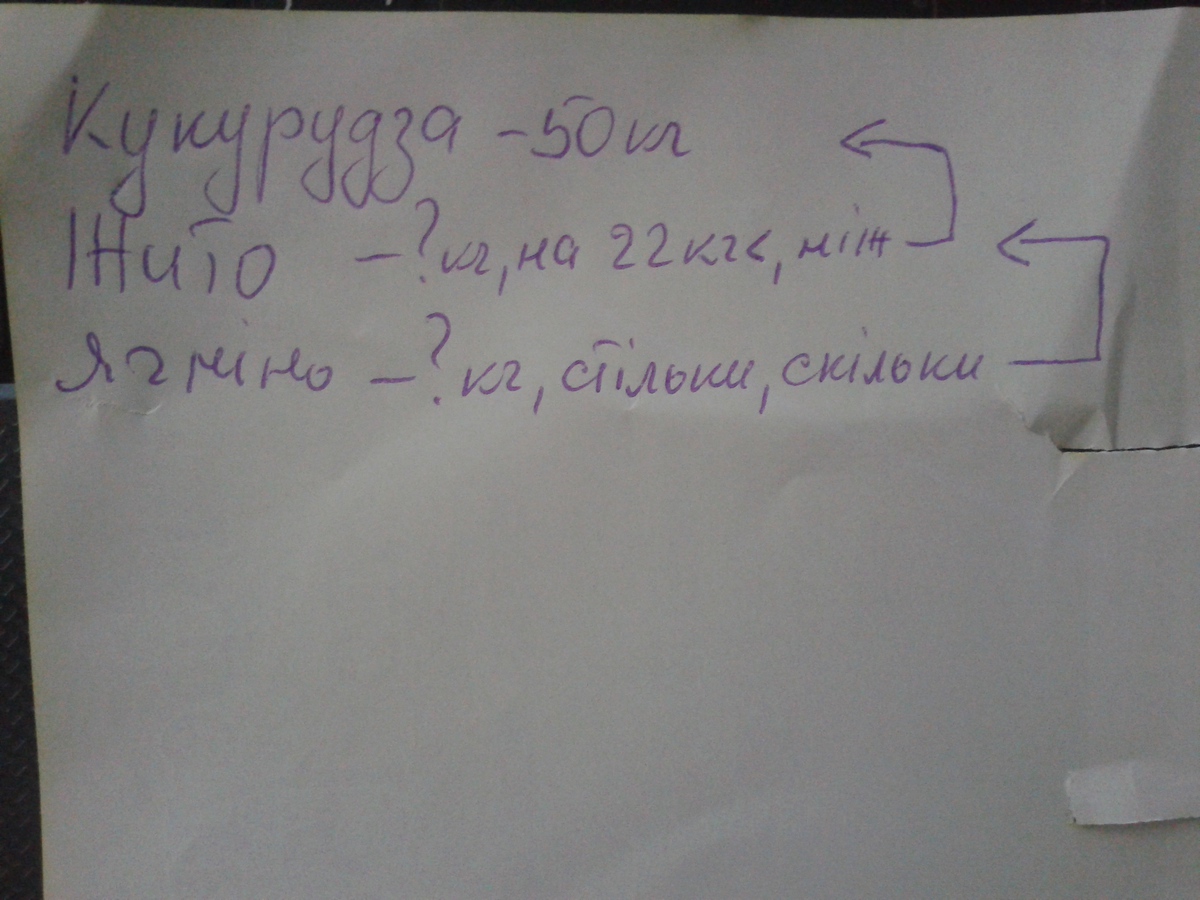 Кукурудза - 50 кг
Жито - ? кг, на 22 кг <, ніж
Ячміно - ? кг, стільки, скільки